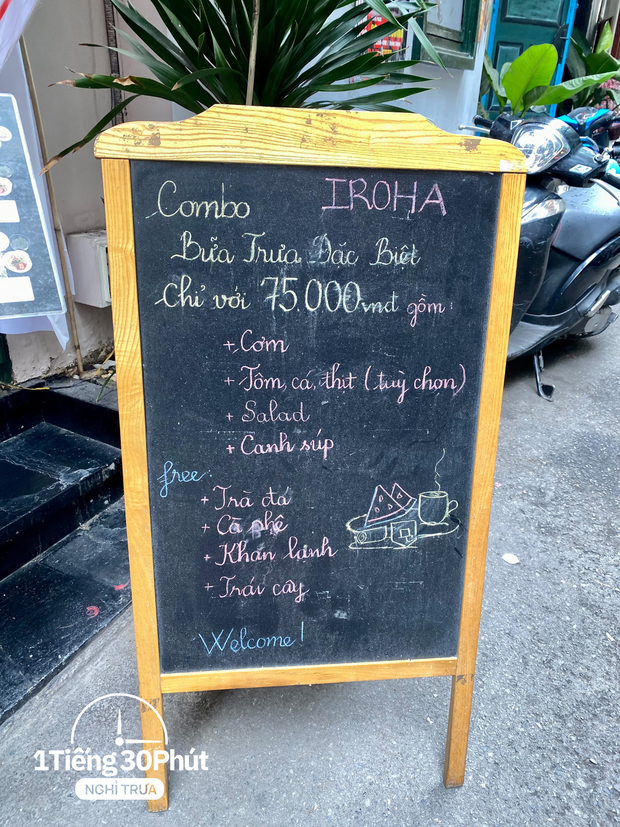 Combo IROHA
Bữa Trưa Đặc Biệt
Chỉ với 75.000vnđ gồm:
+ Cơm
+ Tôm, cá, thịt (tuỳ chọn)
+ Salad
+ Canh súp
free:
+ Trà đá
+ Cà phê
+ Khăn lạnh
+ Trái cây
Welcome!
1Tiếng 30Phút
NGHỈ TRƯA